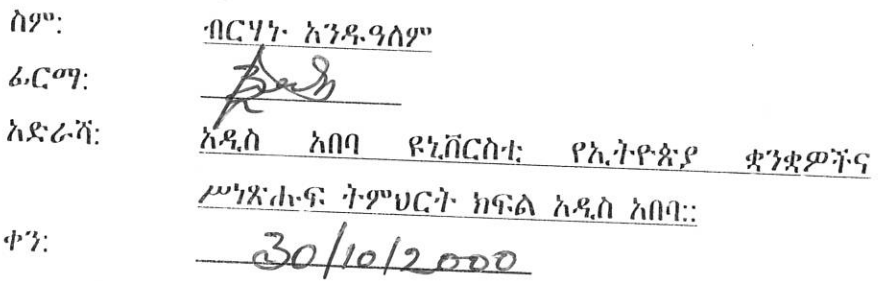 ስም: ብርሃኑ አንዱዓለም
ፊርማ:
አድራሻ: አዲስ አበባ ዩኒቨርስቲ የኢትዮጵያ ቋንቋዎችና
ሥነጽሑፍ ትምህርት ክፍል አዲስ አበባ::
ቀን: 30/10/2000